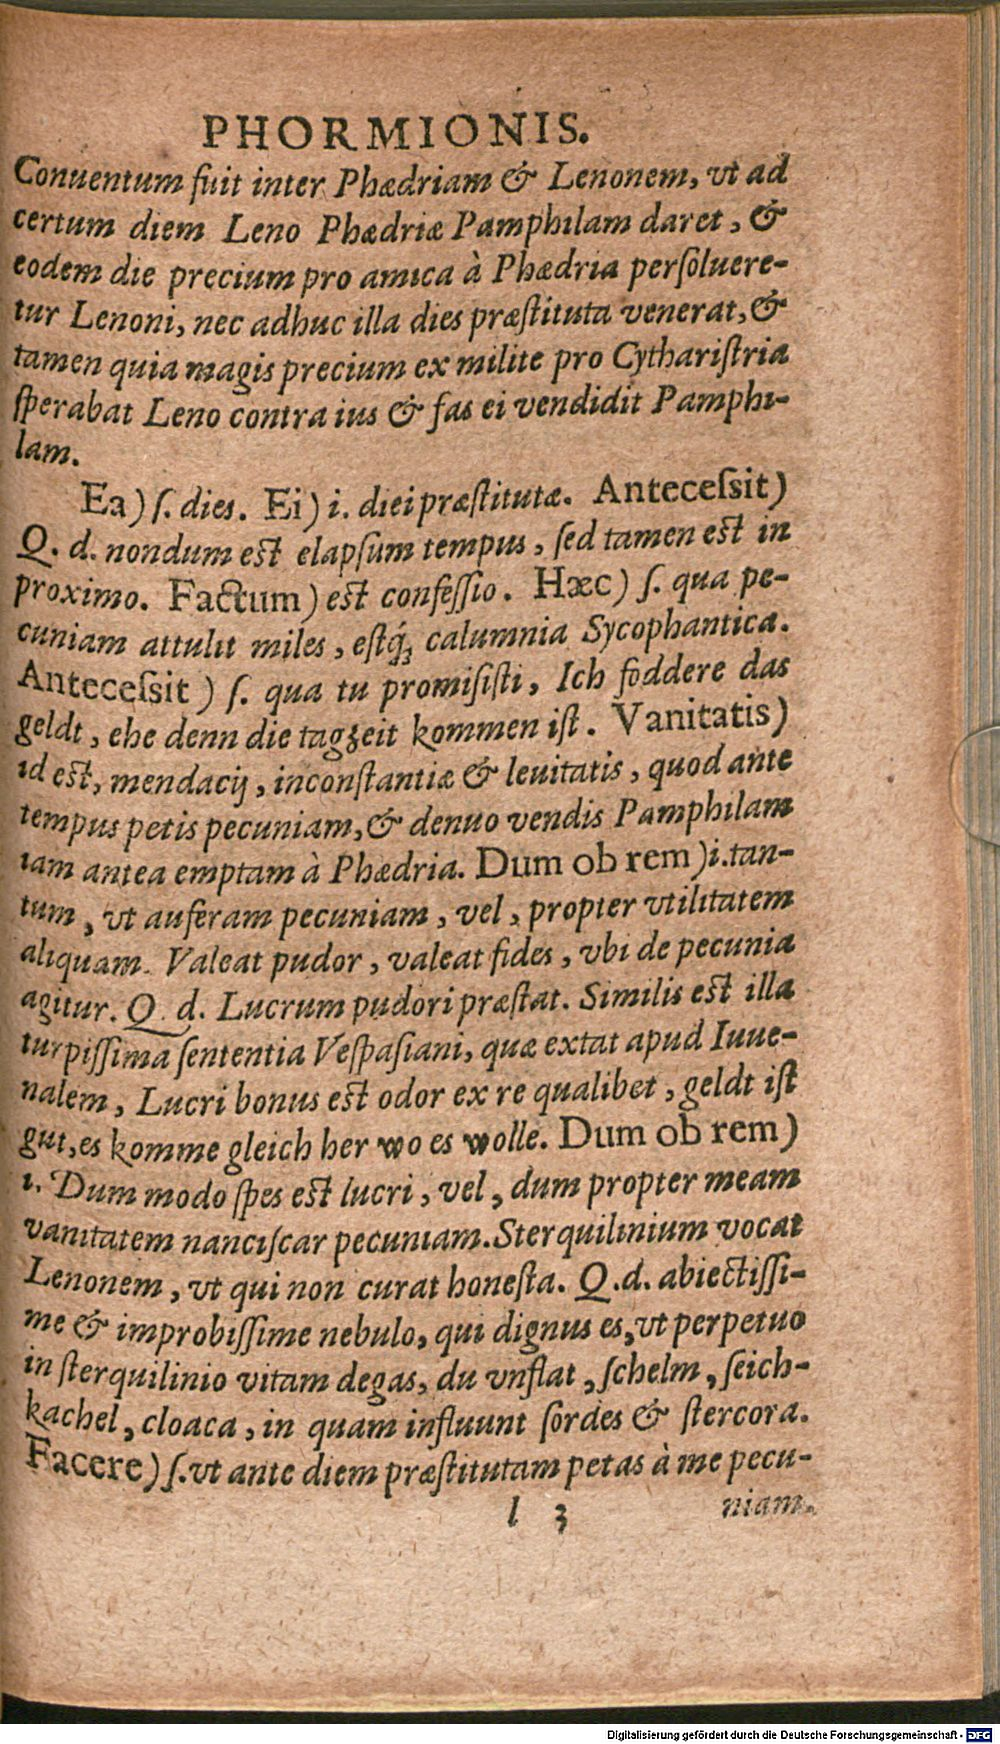 PHORMIONIS.
Conuentum fuit inter Phædriam & Lenonem, vt ad
certum diem Leno Phædriæ Pamphilam daret, &
eodem die precium pro amica à Phædria persoluere-
tur Lenoni, nec adhuc illa dies præstituta venerat, &
tamen quia magis precium ex milite pro Cytharistria
sperabat Leno contra ius & fas ei vendidit Pamphi-
lam.
Ea) ſ. dies. Ei) i. diei præſtitutæ. Anteceſsit)
Q. d. nondum eſt elapſum tempus, ſed tamen eſt in
proximo. Factum) eſt confeſſio. Hæc) ſ. qua pe-
cuniam attulit miles, eſtq́ꝫ calumnia Sycophantica.
Anteceſsit) ſ. qua tu promiſiſti, Ich foddere das
geldt, ehe denn die tagzeit kommen iſt. Vanitatis)
id eſt, mendacij, inconſtantiæ & leuitatis, quod ante
tempus petis pecuniam, & denuo vendis Pamphilam
iam antea emptam à Phædria. Dum ob rem) i. tan-
tum, vt auferam pecuniam, vel, propter vtilitatem
aliquam. Valeat pudor, valeat fides, vbi de pecunia
agitur. Q. d. Lucrum pudori præſtat. Similis eſt illa
turpiſſima ſententia Veſpaſiani, quæ extat apud Iuue-
nalem, Lucri bonus eſt odor ex re qualibet, geldt iſt
gut, es komme gleich her wo es wolle. Dum ob rem)
i. Dum modo ſpes eſt lucri, vel, dum propter meam
vanitatem nanciſcar pecuniam. Sterquilinium vocat
Lenonem, vt qui non curat honeſta. Q. d. abiectiſſi-
me & improbiſſime nebulo, qui dignus es, vt perpetuo
in ſterquilinio vitam degas, du vnflat, ſchelm, ſeich-
kachel, cloaca, in quam influunt ſordes & ſtercora.
Facere) ſ. vt ante diem præſtitutam petas à me pecu-
l 3 niam.
Digitalisierung gefördert durch die Deutsche Forschungsgemeinschaft - DFG